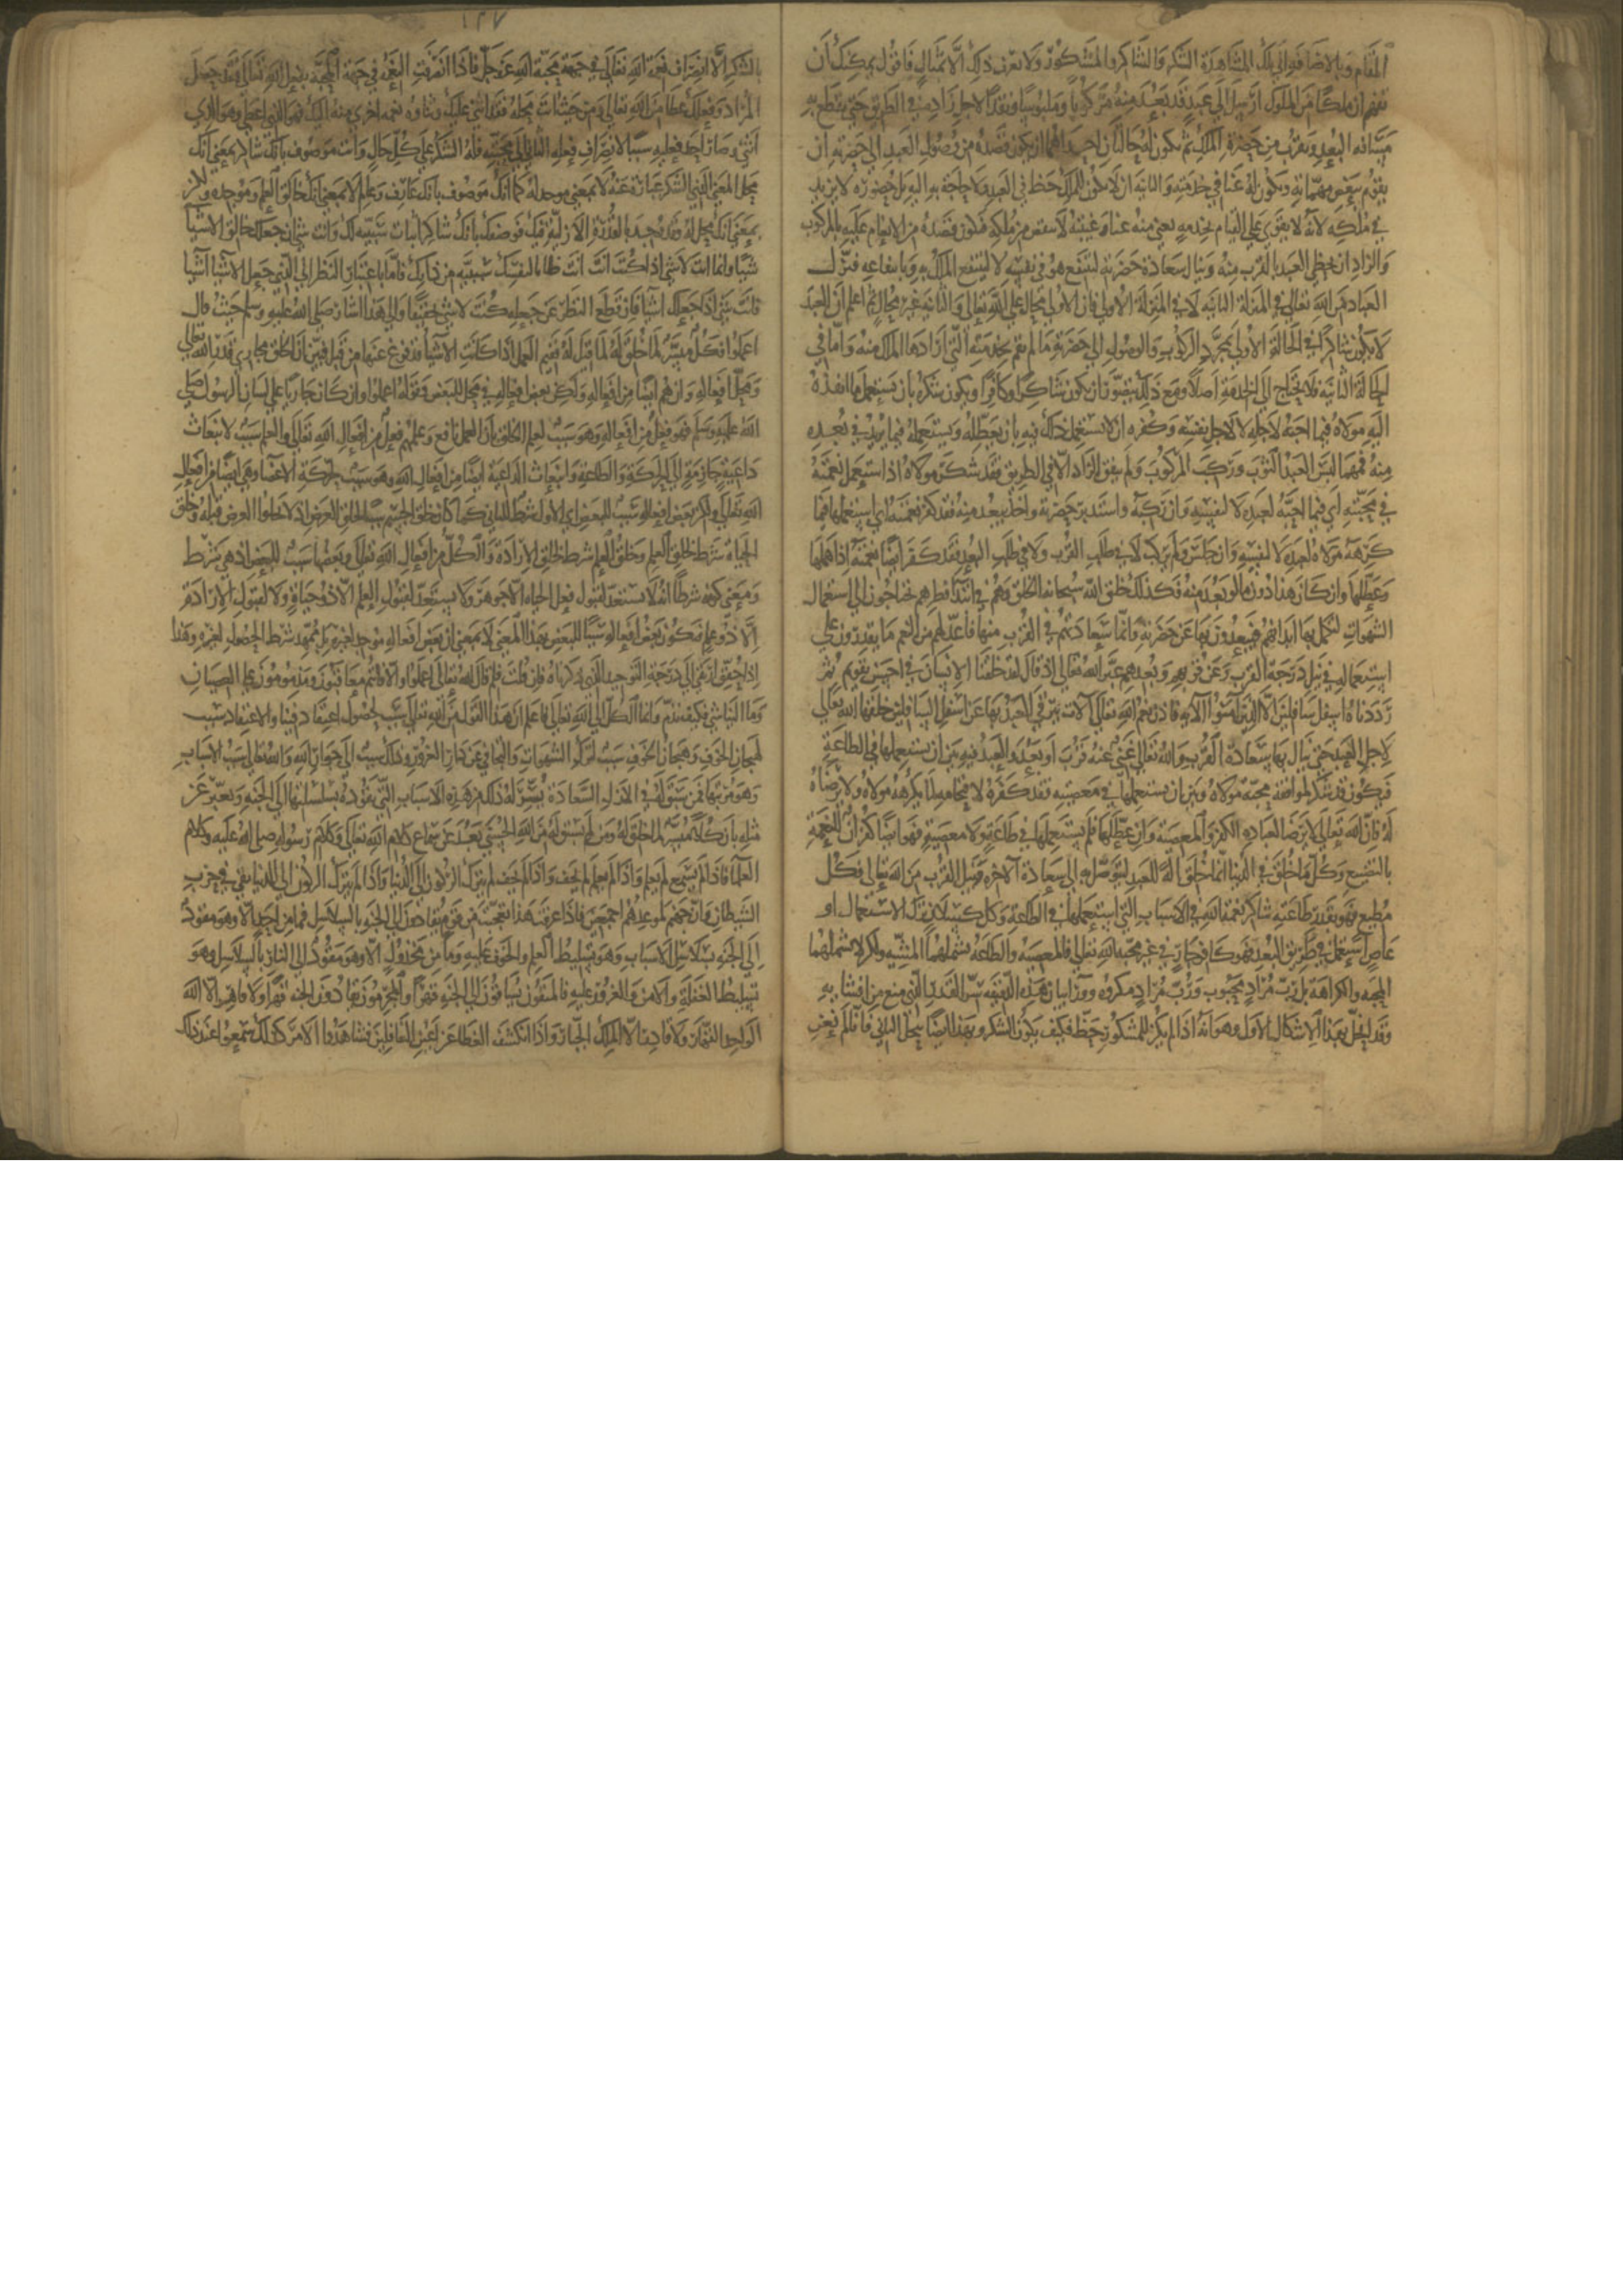 المقام وبالاضافة الى تلك المشاهدة الشكر والشاكر والمشكور ولا نعرف ذلك الا بمثال فاقول يمكنك أن
تفهم ان ملكا من الملوك ارسل الى عبد قد بعد منه مركوبا وملبوسا ونقدا لاجل زاده في الطريق حتى يقطع به
مسافة البعد ويقرب من حضرة الملك ثم يكون له حالتان احداهما ان يكون قصده من وصول العبد الى حضرته ان
يقوم ببعض مهماته ويكون له غنا في خدمته والثانية ان لا يكون للملك حظ في العبد ولا حاجة به اليه بل حضوره لا يزيد
في ملكه لانه لا يقوى على القيام بخدمة يغني منه عنا وغيبته لا تنقص من ملكه فيكون قصده من الانعام عليه بالمركوب
والزاد ان يحظى العبد بالقرب منه وينال سعادة حضرته لينتفع هو في نفسه لا لينتفع الملك به وبانتفاعه فنزل
العباد من الله تعالى في المنزلة الثانية لا في المنزلة الاولى فان الاولى محال على الله تعالى والثانية غير محال ثم اعلم ان العبد
لا يكون شاكرا في الحالة الاولى بمجرد الركوب والوصول الى حضرته ما لم يقم بخدمته التي ارادها الملك منه واما في
الحالة الثانية فلا يحتاج الى الخدمة اصلا ومع ذلك يتصور ان يكون شاكرا وكافرا ويكون شكره بان يستعمل ما انفذه
اليه مولاه فيما احبه لاجله لا لاجل نفسه وكفره ان لا يستعمل ذلك فيه بان يعطله ويستعمله فيما يزيد في بعده
منه فمهما لبس العبد الثوب وركب المركوب ولم ينفق الزاد الا في الطريق فقد شكر مولاه اذ استعمل نعمته
في محبته اي فيما احبه لعبده لا لنفسه وان ركبه واستدبر حضرته واخذ يبعد منه فقد كفر نعمته اي استعملها فيما
كرهه مولاه لعبده لا لنفسه وان جلس ولم يركب لا في طلب القرب ولا في طلب البعد فقد كفر ايضا نعمته اذ اهملها
وعطلها وان كان هذا دون ما لو بعد منه فكذلك خلق الله سبحانه الخلق وهم في ابتداء فطرهم يحتاجون الى استعمال
الشهوات لتكمل بها ابدانهم فيبعدون بها عن حضرته وانما سعادتهم في القرب منها فاعد لهم من النعم ما يقدرون على
استعماله في نيل درجة القرب وعن قربهم وبعدهم عبر الله تعالى اذ قال لقد خلقنا الانسان في احسن تقويم ثم
رددناه اسفل سافلين الا الذين آمنوا الآية فاذن نعم الله تعالى آلات يترقى العبد بها عن اسفل السافلين خلقها الله تعالى
لاجل العبد حتى ينال بها سعادة القرب والله تعالى غني عنه قرب او بعد والعبد فيه بين ان يستعملها في الطاعة
فيكون قد شكر لموافقة محبة مولاه وبين ان يستعملها في معصيته فقد كفره لاقتحامه لما يكرهه مولاه ولا يرضاه
له فان الله تعالى لا يرضى لعباده الكفر والمعصية وان عطلها فلم يستعملها في طاعة ولا معصية فهو ايضا كفران للنعمة
بالتضييع وكل ما خلق في الدنيا انما خلق آلة للعبد ليتوصل به الى سعادة الآخرة ونيل القرب من الله تعالى فكل
مطيع فهو بقدر طاعته شاكر نعمة الله في الاسباب التي استعملها في الطاعة وكل كسلان ترك الاستعمال او
عاص استعملها في طريق البعد فهو كافر جار في غير محبة الله تعالى فالمعصية والطاعة تشملهما المشيئة ولكن لا تشملهما
المحبة والكراهة بل رب مراد محبوب ورب مراد مكروه وورا بيان هذه الدقيقة سر القدر الذي منع من افشائه
وقد انحل بهذا الاشكال الاول وهو انه اذا لم يكن للمشكور حظ فكيف يكون الشكر وبهذا ايضا ينحل الثاني فانا لم نعن
١٢٧
بالشكر الا انصراف نعمة الله تعالى في جهة محبة الله عز وجل فاذا انصرفت النعمة في جهة المحبة بفعل الله تعالى فقد حصل
المراد وفعلك عطا من الله تعالى ومن حيث انت محله فقد اثنى عليك وثناؤه نعمة اخرى منه اليك فهو الذي اعطى وهو الذي
اثنى وصار احد فعليه سببا لانصراف فعله الثاني الى جهة محبته فله الشكر على كل حال وانت موصوف بانك شاكر بمعنى انك
محل المعنى الذي الشكر عبارة عنه لا بمعنى موجد له كما انك موصوف بانك عارف وعالم لا بمعنى انك خالق العلم وموجده ولكن
بمعنى انك محل له وقد وجد بالقدرة الازلية فيك فوصفك بانك شاكر اثبات شيئية لك وانت شئ اذ جعلك خالق الاشيا
شيئا وانما انت لا شئ اذا كنت انت انت ظانا لنفسك شيئية من ذاتك فاما باعتبار النظر الى الذي جعل الاشيا اشيا
فانت شئ اذ جعلك شيئا فان قطع النظر عن جعله كنت لا شئ تحقيقا والى هذا اشار صلى الله عليه وسلم حيث قال
اعملوا فكل ميسر لما خلق له لما قيل له ففيم العمل اذا كانت الاشيا قد فرغ عنها من قبل فبين ان الخلق مجاري قدرة الله تعالى
ومحل افعاله وان هم ايضا من افعاله ولكن بعض افعاله في محل للبعض وقوله اعملوا وان كان جاريا على لسان الرسول صلى
الله عليه وسلم فهو فعل من افعاله وهو سبب لعلم الخلق بان العمل نافع وعلمهم فعل من افعال الله تعالى والعلم سبب لانبعاث
داعية جازمة الى الحركة والطاعة وانبعاث الداعية ايضا من افعال الله وهو سبب لحركة الاعضا وهي ايضا من افعال
الله تعالى ولكن بعض افعاله سبب للبعض اي الاول شرط للثاني كما كان خلق الجسم سببا لخلق العرض اذ لا يخلق العرض قبله وخلق
الحياة شرط لخلق العلم وخلق العلم شرط لخلق الارادة والكل من افعال الله تعالى وبعضها سبب للبعض اذ هي شرط
ومعنى كونه شرطا انه لا يستعد لقبول فعل الحياة الا جوهر ولا يستعد لقبول العلم الا ذو حياة ولا لقبول الارادة
الا ذو علم فيكون بعض افعاله سببا للبعض بهذا المعنى لا بمعنى ان بعض افعاله موجد لغيره بل ممهد شرط الحصول لغيره وهذا
اذا حقق ارتقى الى درجة التوحيد الذي ذكرناه فان قلت فلم قال الله تعالى اعملوا والا فانتم معاقبون ومذمومون على العصيان
وما الينا شئ فكيف نذم وانما الكل الى الله تعالى فاعلم ان هذا القول من الله تعالى سبب لحصول اعتقاد فينا والاعتقاد سبب
لهيجان الخوف وهيجان الخوف سبب لترك الشهوات والتجافي عن دار الغرور وذلك سبب الى جوار الله والله تعالى سبب الاسباب
وهو مرتبها فمن سبق له في الازل السعادة يسر له ذلك بهذه الاسباب التي تقوده بسلسلتها الى الجنة ويعبر عن
مثله بان كلا ميسر لما خلق له ومن لم يسبق له من الله الحسنى يبعد عن سماع كلام الله تعالى وكلام رسوله صلى الله عليه وكلام
العلما فاذا لم يسمع لم يعلم واذا لم يعلم لم يخف واذا لم يخف لم يترك الركون الى الدنيا واذا لم يترك الركون الى الدنيا بقي في حزب
الشيطان وان جهنم لموعدهم اجمعين فاذا عرفت هذا تعجبت من قوم يقادون الى الجنة بالسلاسل فما من احد الا وهو مقود
الى الجنة بسلاسل الاسباب وهو تسليط العلم والخوف عليه وما من مخذول الا وهو مقود الى النار بالسلاسل وهو
تسليط الغفلة والامن والغرور عليه فالمتقون يساقون الى الجنة قهرا والمجرمون يقادون الى النار قهرا ولا قاهر الا الله
الواحد القهار ولا قادر الا الملك الجبار واذا انكشف الغطا عن اعين الغافلين فشاهدوا الامر كذلك سمعوا عند ذلك